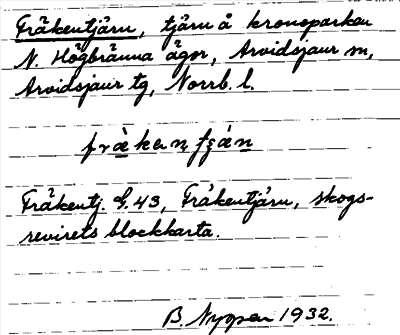 Fräkentjärn, tjärn å kronoparken
N. Högbränna ägor, Arvidsjaur sn,
Arvidsjaur tg, Norrb. l.
fräkentj. G. 43, Fräkentjärn, skogs-
revirets blockkarta.
B. Nyman 1932.